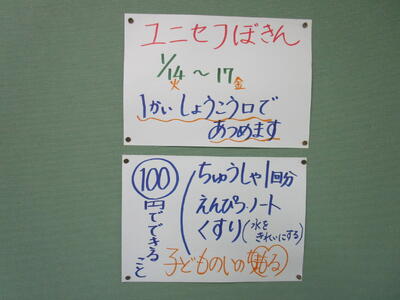 ユニセフぼきん
1/14～17
火 金
1かいしょうこう口で
あつめます
100
円でできること
ちゅうしゃ1回分
えんぴつ・ノート
くすり(水を
きれいにする)
子どものいの